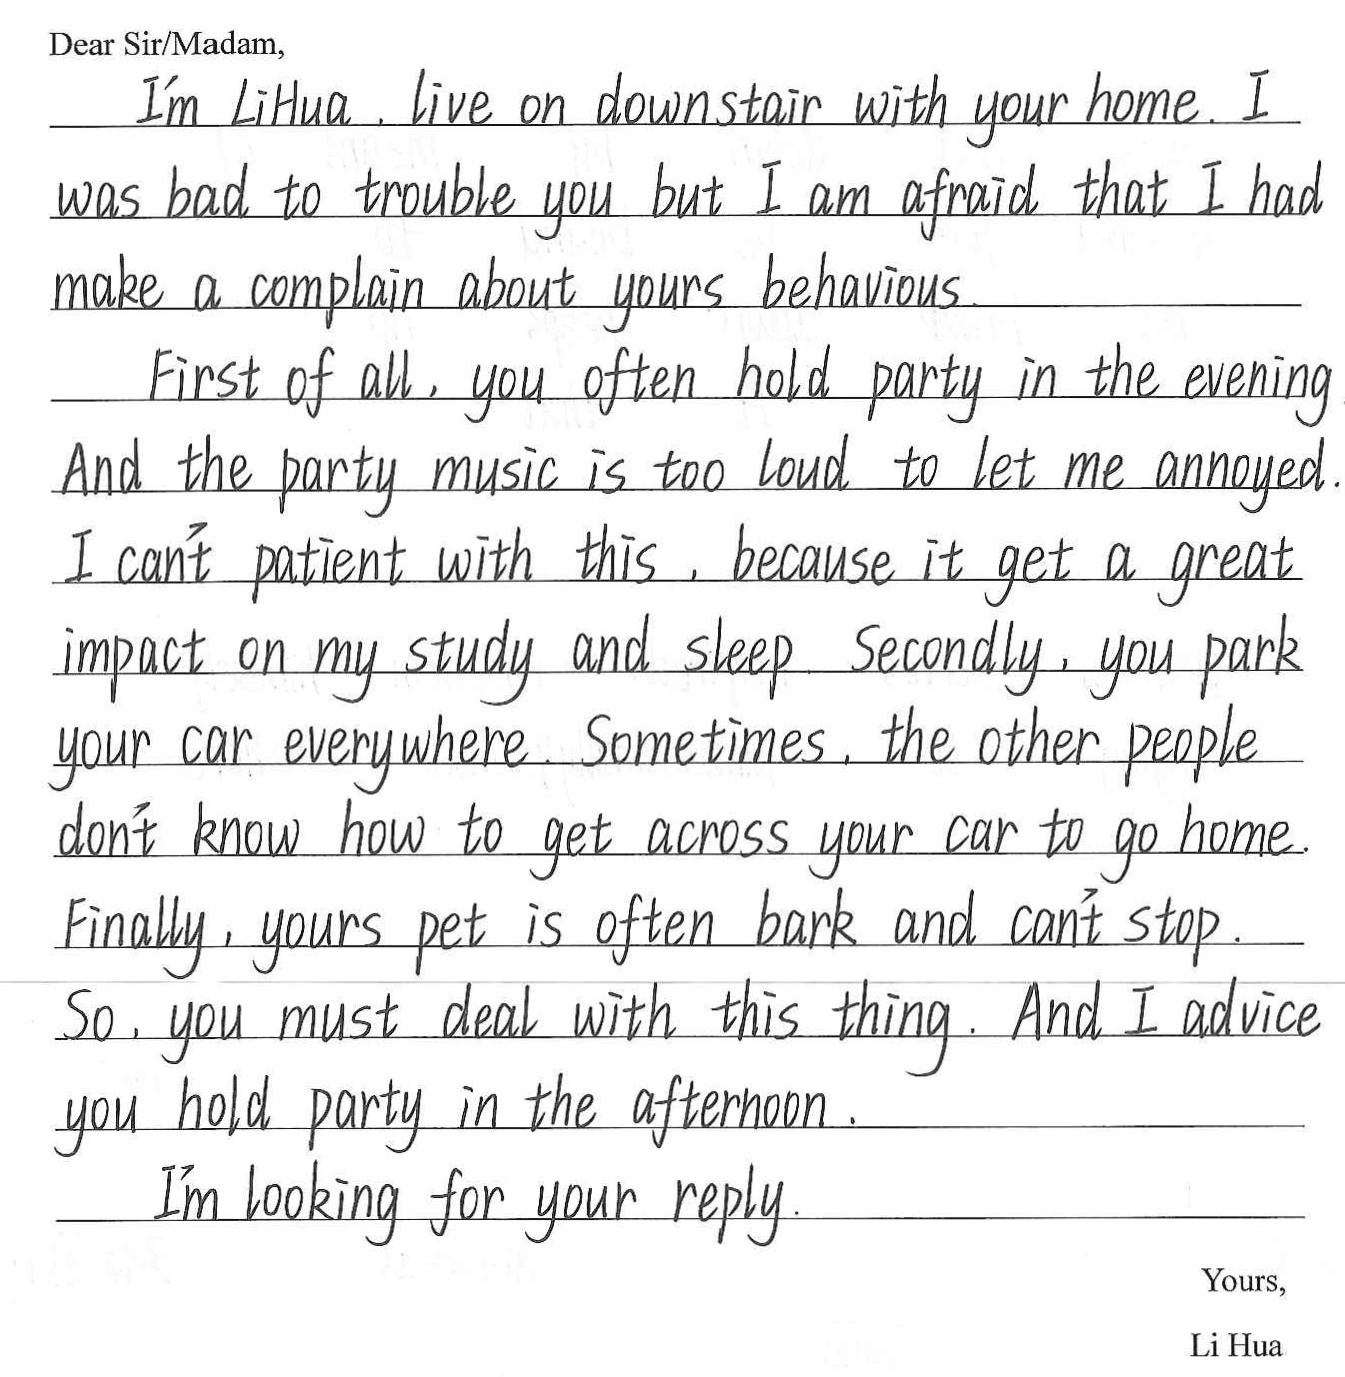 Dear Sir/Madam,
I'm LiHua, live on downstair with your home. I
was bad to trouble you but I am afraid that I had
make a complain about yours behavious.
First of all, you often hold party in the evening.
And the party music is too loud to let me annoyed.
I can't patient with this, because it get a great
impact on my study and sleep. Secondly, you park
your car everywhere. Sometimes, the other people
don't know how to get across your car to go home.
Finally, yours pet is often bark and can't stop.
So, you must deal with this thing. And I advice
you hold party in the afternoon.
I'm looking for your reply.
Yours,
Li Hua